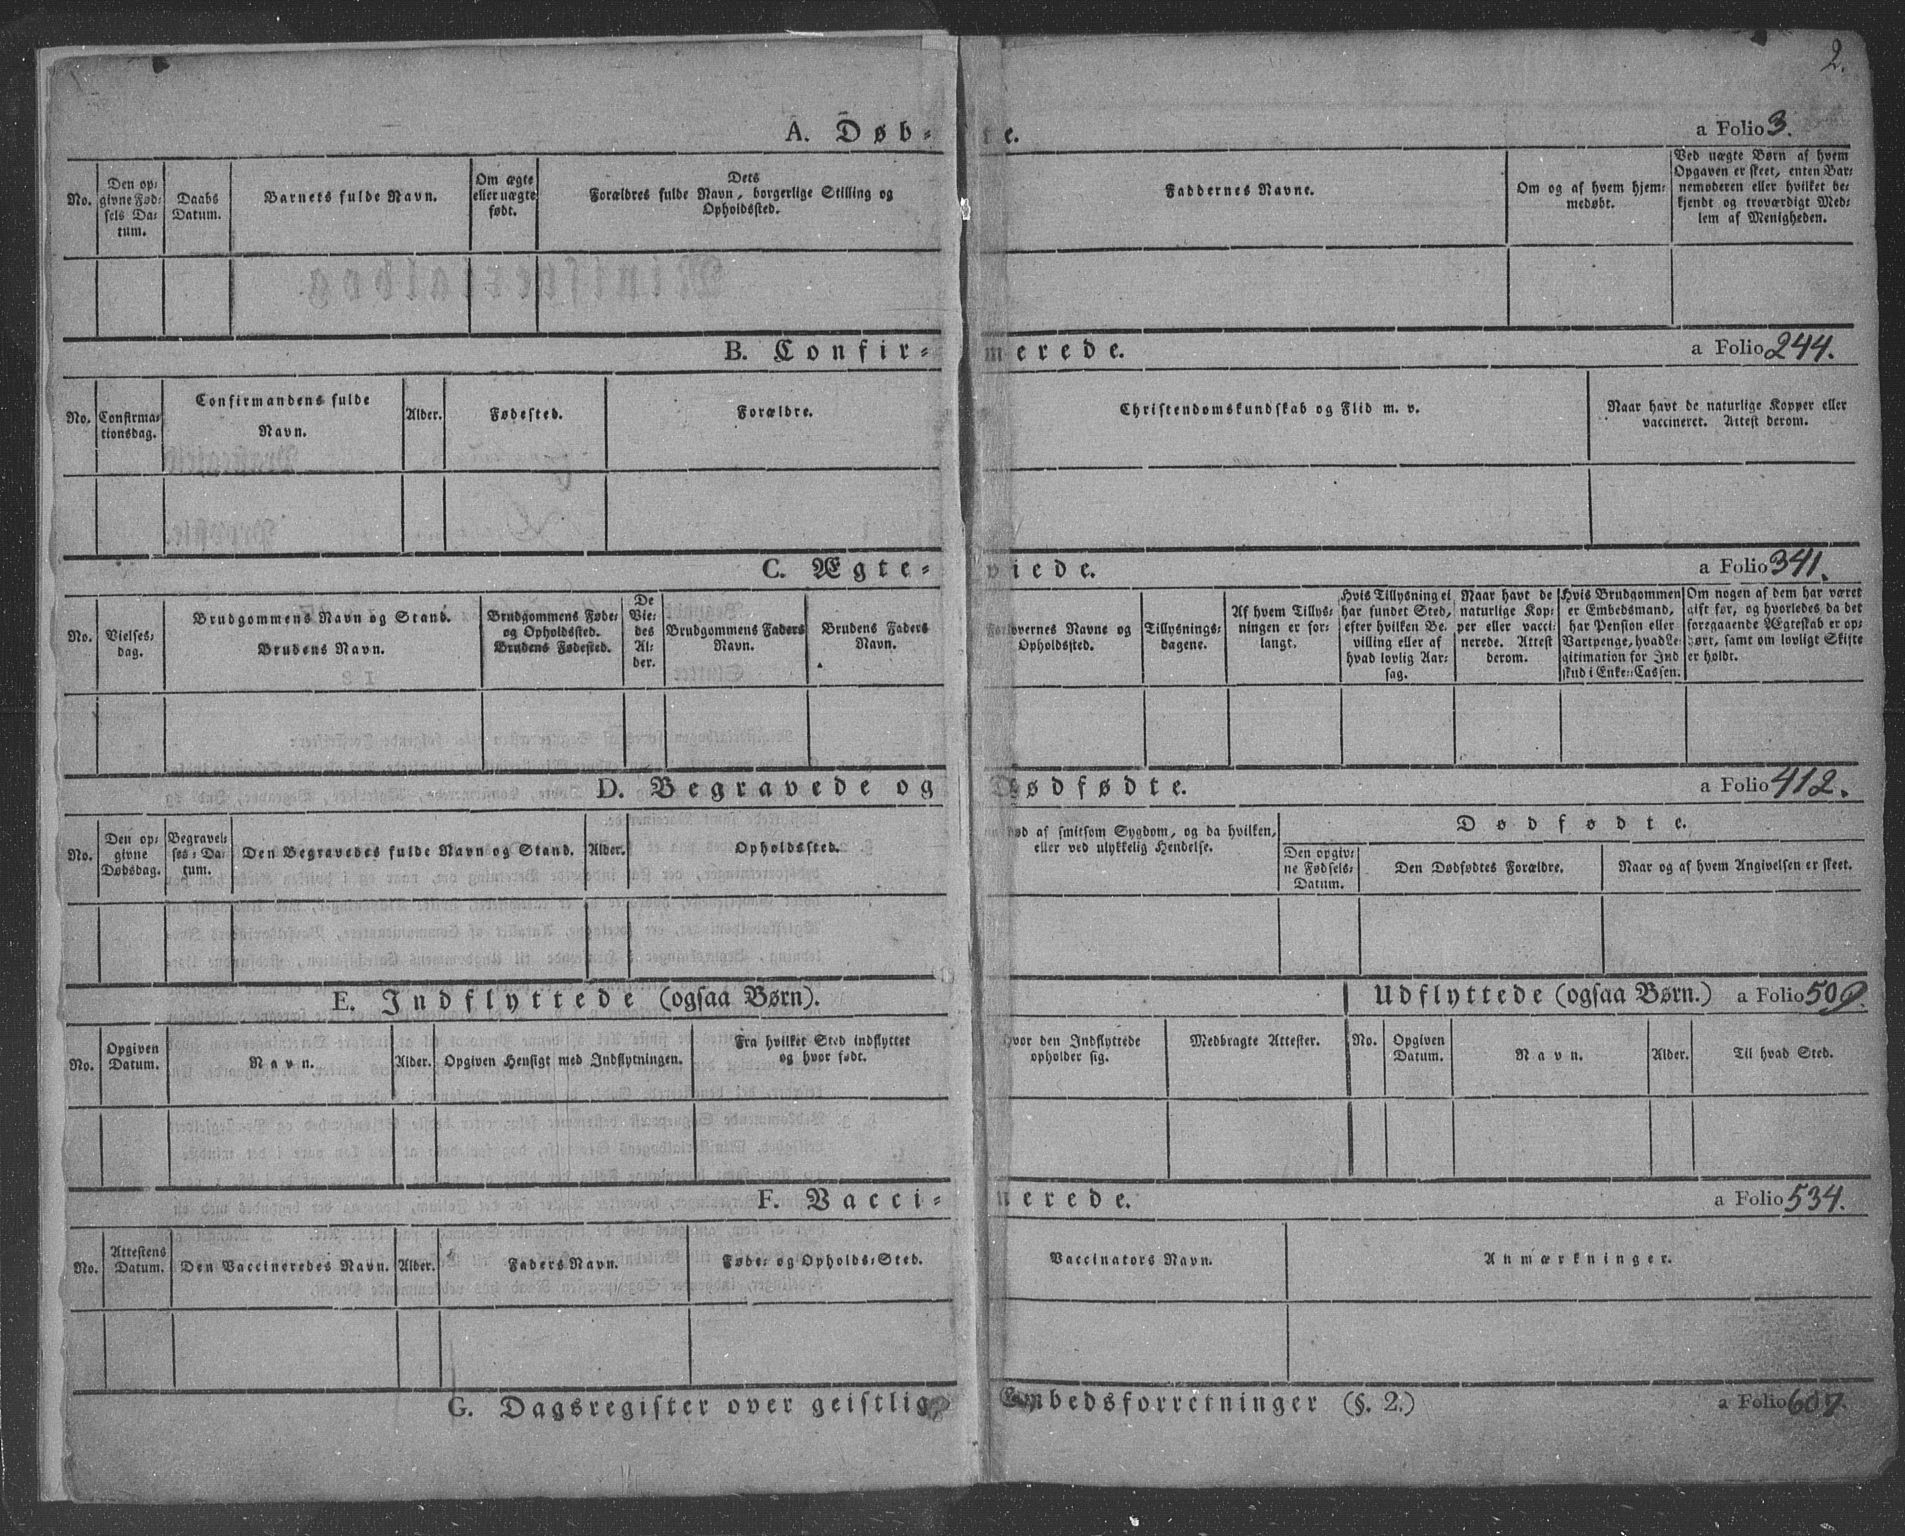 2.
A. Døb- te. a Folio 3.
No. | Den opgivne Fødsels Datum. | Daabs Datum. | Barnets fulde Navn. | Om ægte eller uægte født. | Dets Forældres fulde Navn, borgerlige Stilling og Opholdssted. | Faddernes Navne. | Om og af hvem hjemmedøbt. | Ved uægte Børn af hvem Opgaven er skeet, enten Barnemoderen eller hvilket bekjendt og troværdigt Medlem af Menigheden.
B. Confir- merede. a Folio 244.
No. | Confirmationsdag. | Confirmandens fulde Navn. | Alder. | Fødested. | Forældre. | Christendomskundskab og Flid m. v. | Naar havt de naturlige Kopper eller vaccineret. Attest derom.
C. Ægte- viede. a Folio 341.
No. | Vielsesdag. | Brudgommens Navn og Stand. Brudens Navn. | Brudgommens Føde- og Opholdsted. Brudens Fødested. | De Viedes Alder. | Brudgommens Faders Navn. | Brudens Faders Navn. | Forlovernes Navne og Opholdssted. | Tillysningsdagene. | Af hvem Tillysningen er forlangt. | Hvis Tillysning ei har fundet Sted, efter hvilken Bevilling eller af hvad lovlig Aarsag. | Naar havt de naturlige Kopper eller vaccinerede. Attest derom. | Hvis Brudgommen er Embedsmand, har Pension eller Vartpenge, hvad Legitimation for Indskud i Enke-Cassen. | Om nogen af dem har været gift før, og hvorledes da det foregaaende Ægteskab er ophørt, samt om lovligt Skifte er holdt.
D. Begravede og Dødfødte. a Folio 412.
No. | Den opgivne Dødsdag. | Begravelses-Datum. | Den Begravedes fulde Navn og Stand. | Alder. | Opholdssted. | død af smitsom Sygdom, og da hvilken, eller ved ulykkelig Hendelse. | Dødfødte. | Den opgivne Fødsels-Datum. | Den Dødfødtes Forældre. | Naar og af hvem Angivelsen er skeet.
E. Indflyttede (ogsaa Børn). Udflyttede (ogsaa Børn.) a Folio 509.
No. | Opgiven Datum. | Navn. | Alder. | Opgiven Hensigt med Indflytningen. | Fra hvilket Sted indflyttet og hvor født. | Hvor den Indflyttede opholder sig. | Medbragte Attester. | No. | Opgiven Datum. | Navn. | Alder. | Til hvad Sted.
F. Vacci- nerede. a Folio 534.
No. | Attestens Datum. | Den Vaccineredes Navn. | Alder. | Faders Navn. | Føde- og Opholds-Sted. | Vaccinators Navn. | Anmærkninger.
G. Dagsregister over geistlige Embedsforretninger (§. 2.) a Folio 607.